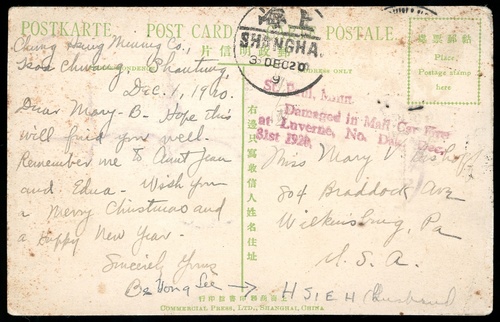 POSTKARTE. POST CARD. CARTE POSTALE.
片信政郵
上海
SHANGHA
3 DEC 20
9
票郵貼黏
Place
Postage stamp
here
ADDRESS ONLY
右邊只寫收信人姓名住址
Chung Hsing Mining Co.,
Shantung,
Dec. 1, 1920.
Dear Mary-B- Hope this
will find you well-
Remember me to Aunt Jean
and Edna- Wish you
a Merry Christmas and
a Happy New Year-
Sincerely Yours
St. Paul, Minn.
Damaged in Mail Car Fire
at Luverne, No. Dak., Dec.
31st 1920.
Miss Mary V.
804 Braddock Ave
Wilkinsburg, Pa
U. S. A.
→ HSIEH (husband
COMMERCIAL PRESS, LTD., SHANGHAI, CHINA